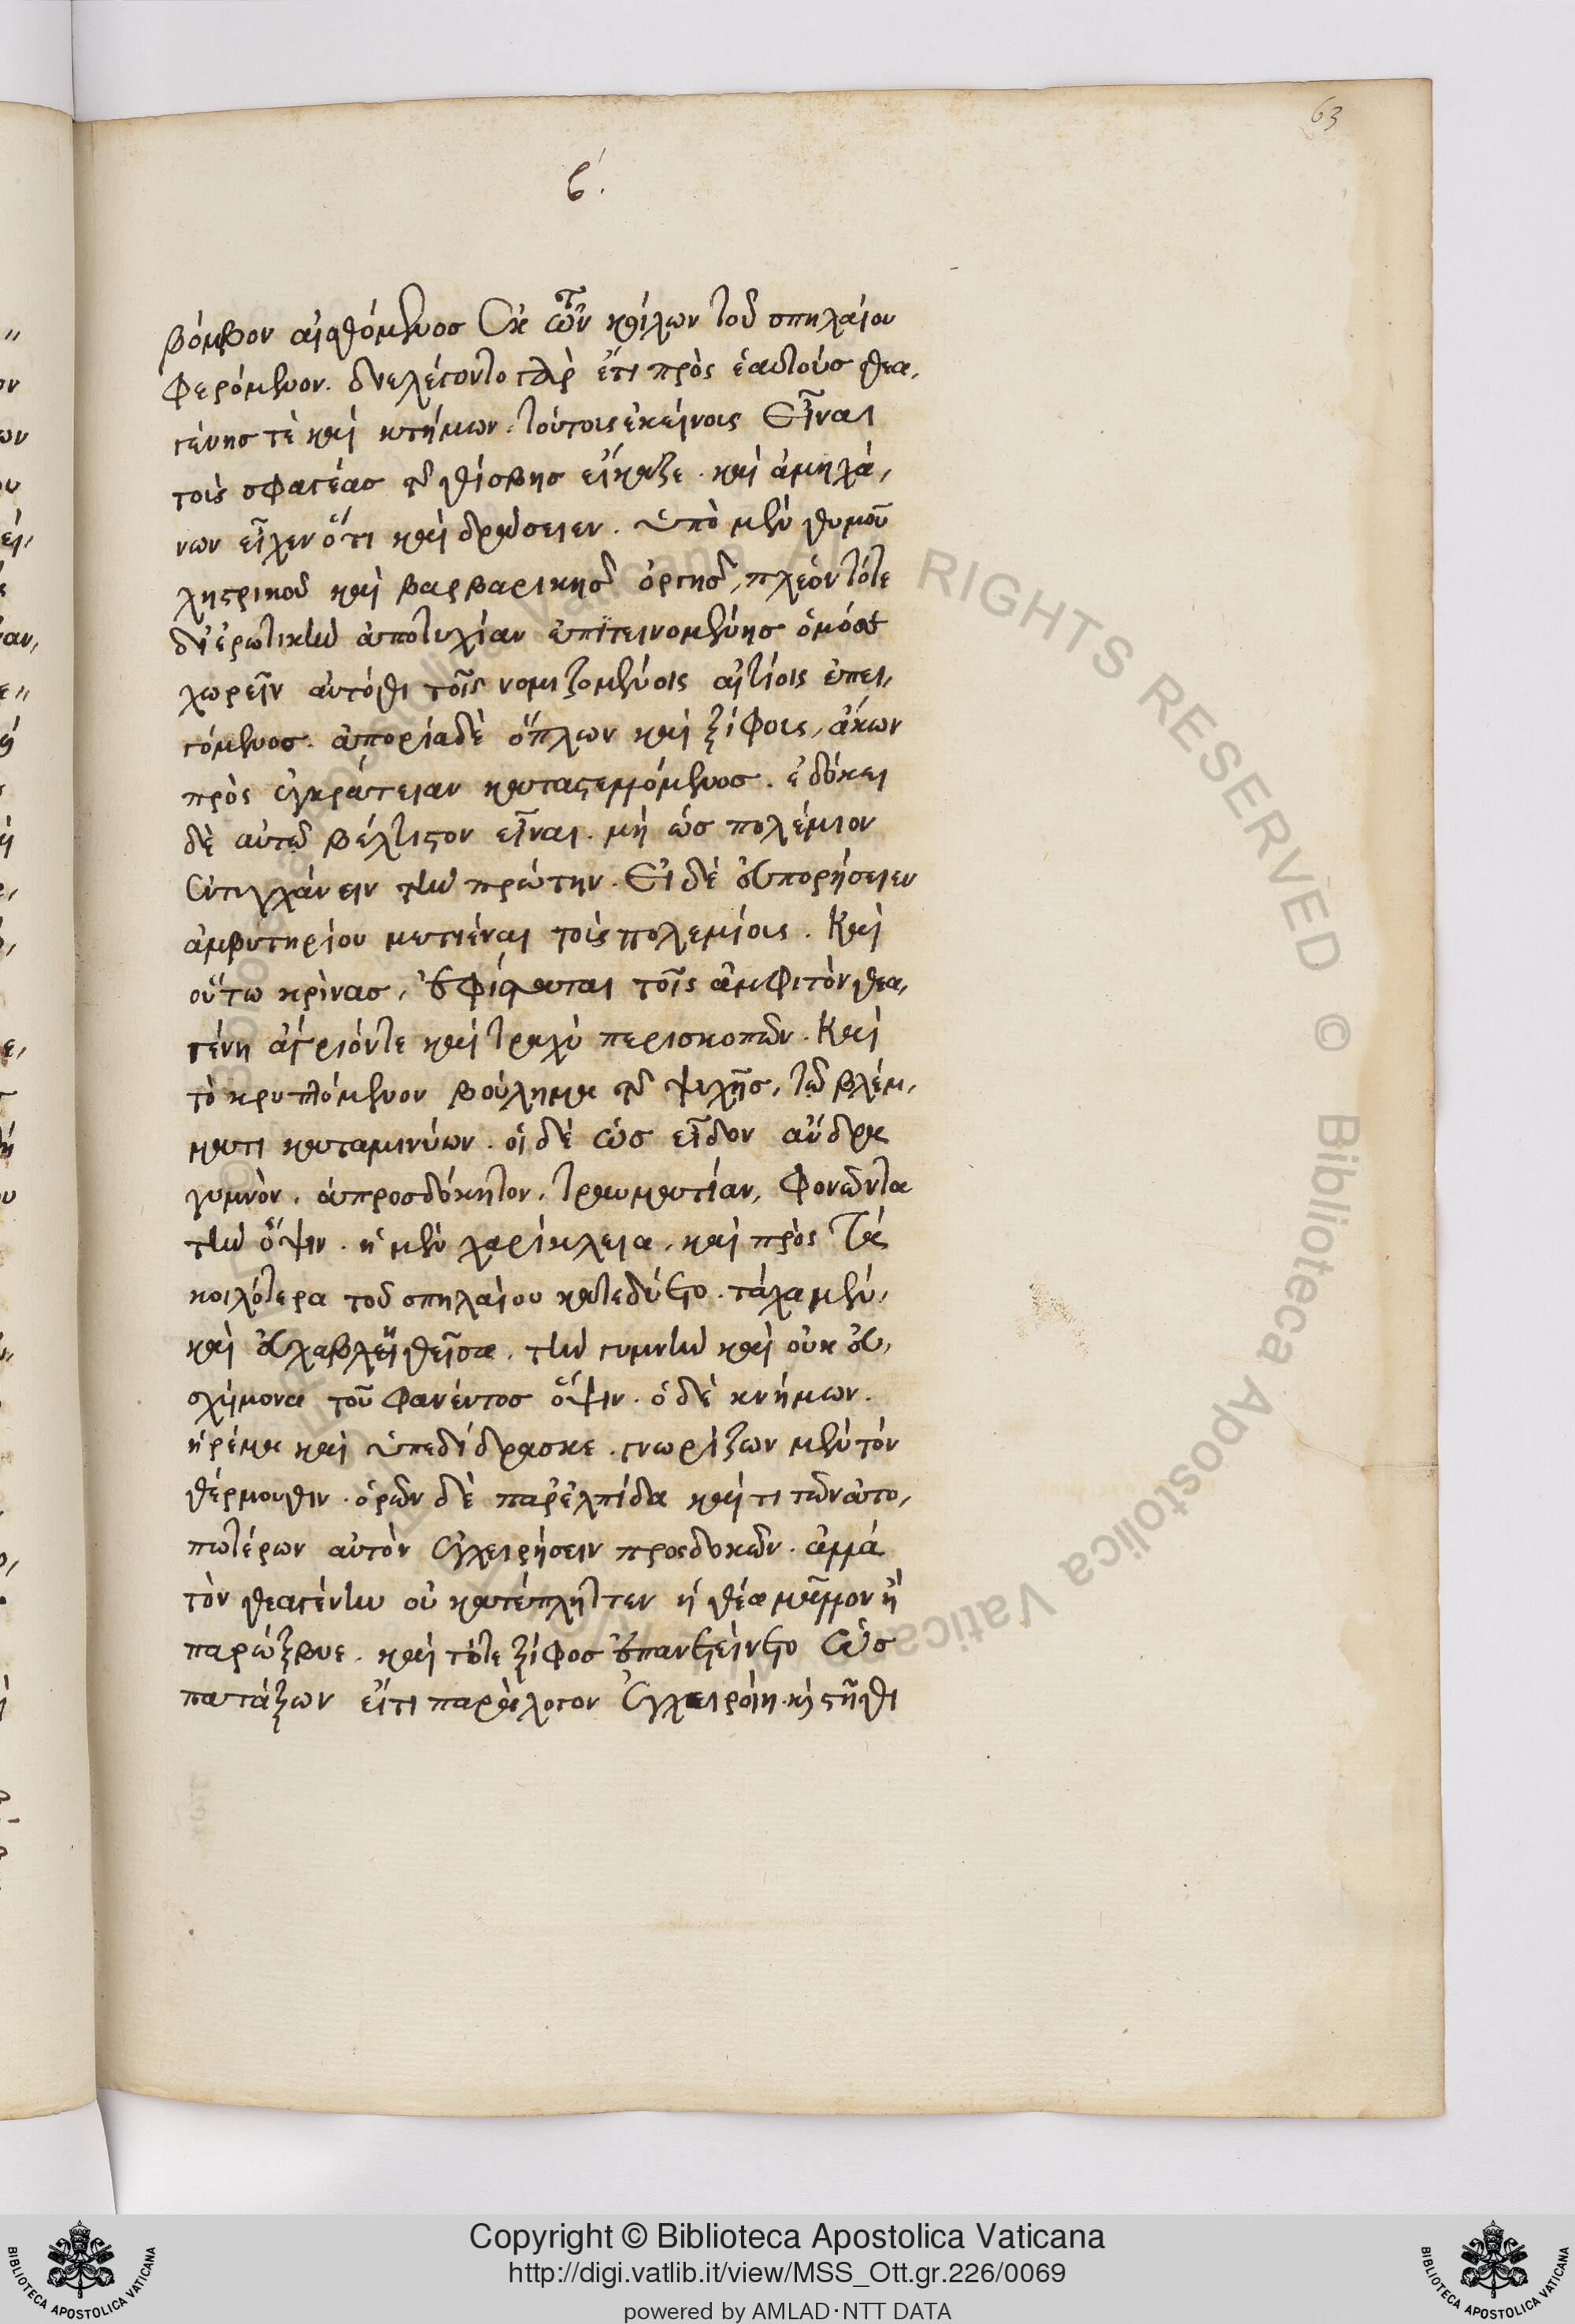 63
β́.
βόμβον αἰσθόμενος ἐκ τῶν κοίλων τοῦ σπηλαίου
φερόμενον. διελέγοντο γὰρ ἔτι πρὸς ἑαυτούς θεα,
γένης τὲ καὶ κνήμων. τούτοις ἐκείνοις εἶναι
τοὶς σφαγέας τῆς θίσβης εἴκαζε. καὶ ἀμηχά,
νων εἶχεν ὅτι καὶ δράσειεν. ὑπὸ μὲν θυμοῦ
λῃστρικοῦ καὶ βαρβαρικῆς ὀργῆς, πλέον τότε
δι' ἐρωτικὴν ἀποτυχίαν ἐπιτεινομένης ὁμόσε
χωρεῖν αὐτόθι τοῖς νομιζομένοις αἰτίοις ἐπει,
γόμενος. ἀπορία δὲ ὅπλων καὶ ξίφους, ἄκων
πρὸς ἐγκράτειαν καταστελλόμενος. ἐδόκει
δὲ αὐτῶ βέλτιστον εἶναι. μὴ ὡς πολέμιον
ἐντυγχάνειν τὴν πρώτην. εἰ δὲ εὐπορήσειεν
ἀμυντηρίου μετιέναι τοὶς πολεμίοις. καὶ
οὕτω κρίνας, ἐφίσταται τοῖς ἀμφὶ τὸν θεα,
γένη ἄγριόν τε καὶ τραχὺ περισκοπῶν. καὶ
τὸ κρυπτόμενον βούλημα τῆς ψυχῆς, τῶ βλέμ,
ματι καταμινύων. οἱ δὲ ὡς εἶδον ἄνδρα
γυμνὸν. ἀπροσδόκητον. τραυματίαν, φονῶντα
τὴν ὄψιν. ἡ μὲν χαρίκλεια, καὶ πρὸς τὰ
κοιλότερα τοῦ σπηλαίου κατεδύετο. τάχα μὲν,
καὶ εὐλαβηθεῖσα. τὴν γυμνὴν καὶ οὐκ εὐ,
σχήμονα τοῦ φανέντος ὄψιν. ὁ δὲ κνήμων.
ἠρέμα καὶ ὑπεδίδρασκε. γνωρίζων μὲν τόν
θέρμουθιν. ὁρῶν δὲ παρ' ἐλπίδα καί τι τῶν ἀτο,
πωτέρων αὐτὸν ἐγχειρήσειν προσδοκῶν. ἀλλὰ
τὸν θεαγένην οὐ κατέπληττεν ἡ θέα μᾶλλον ἢ
παρώξυνε. καὶ τότε ξίφος ἐπανετείνετο ὡς
πατάξων εἴ τι παράλογον ἐγχειροίη. κὶ στῆθι
Copyright © Biblioteca Apostolica Vaticana
http://digi.vatlib.it/view/MSS_Ott.gr.226/0069
powered by AMLAD·NTT DATA